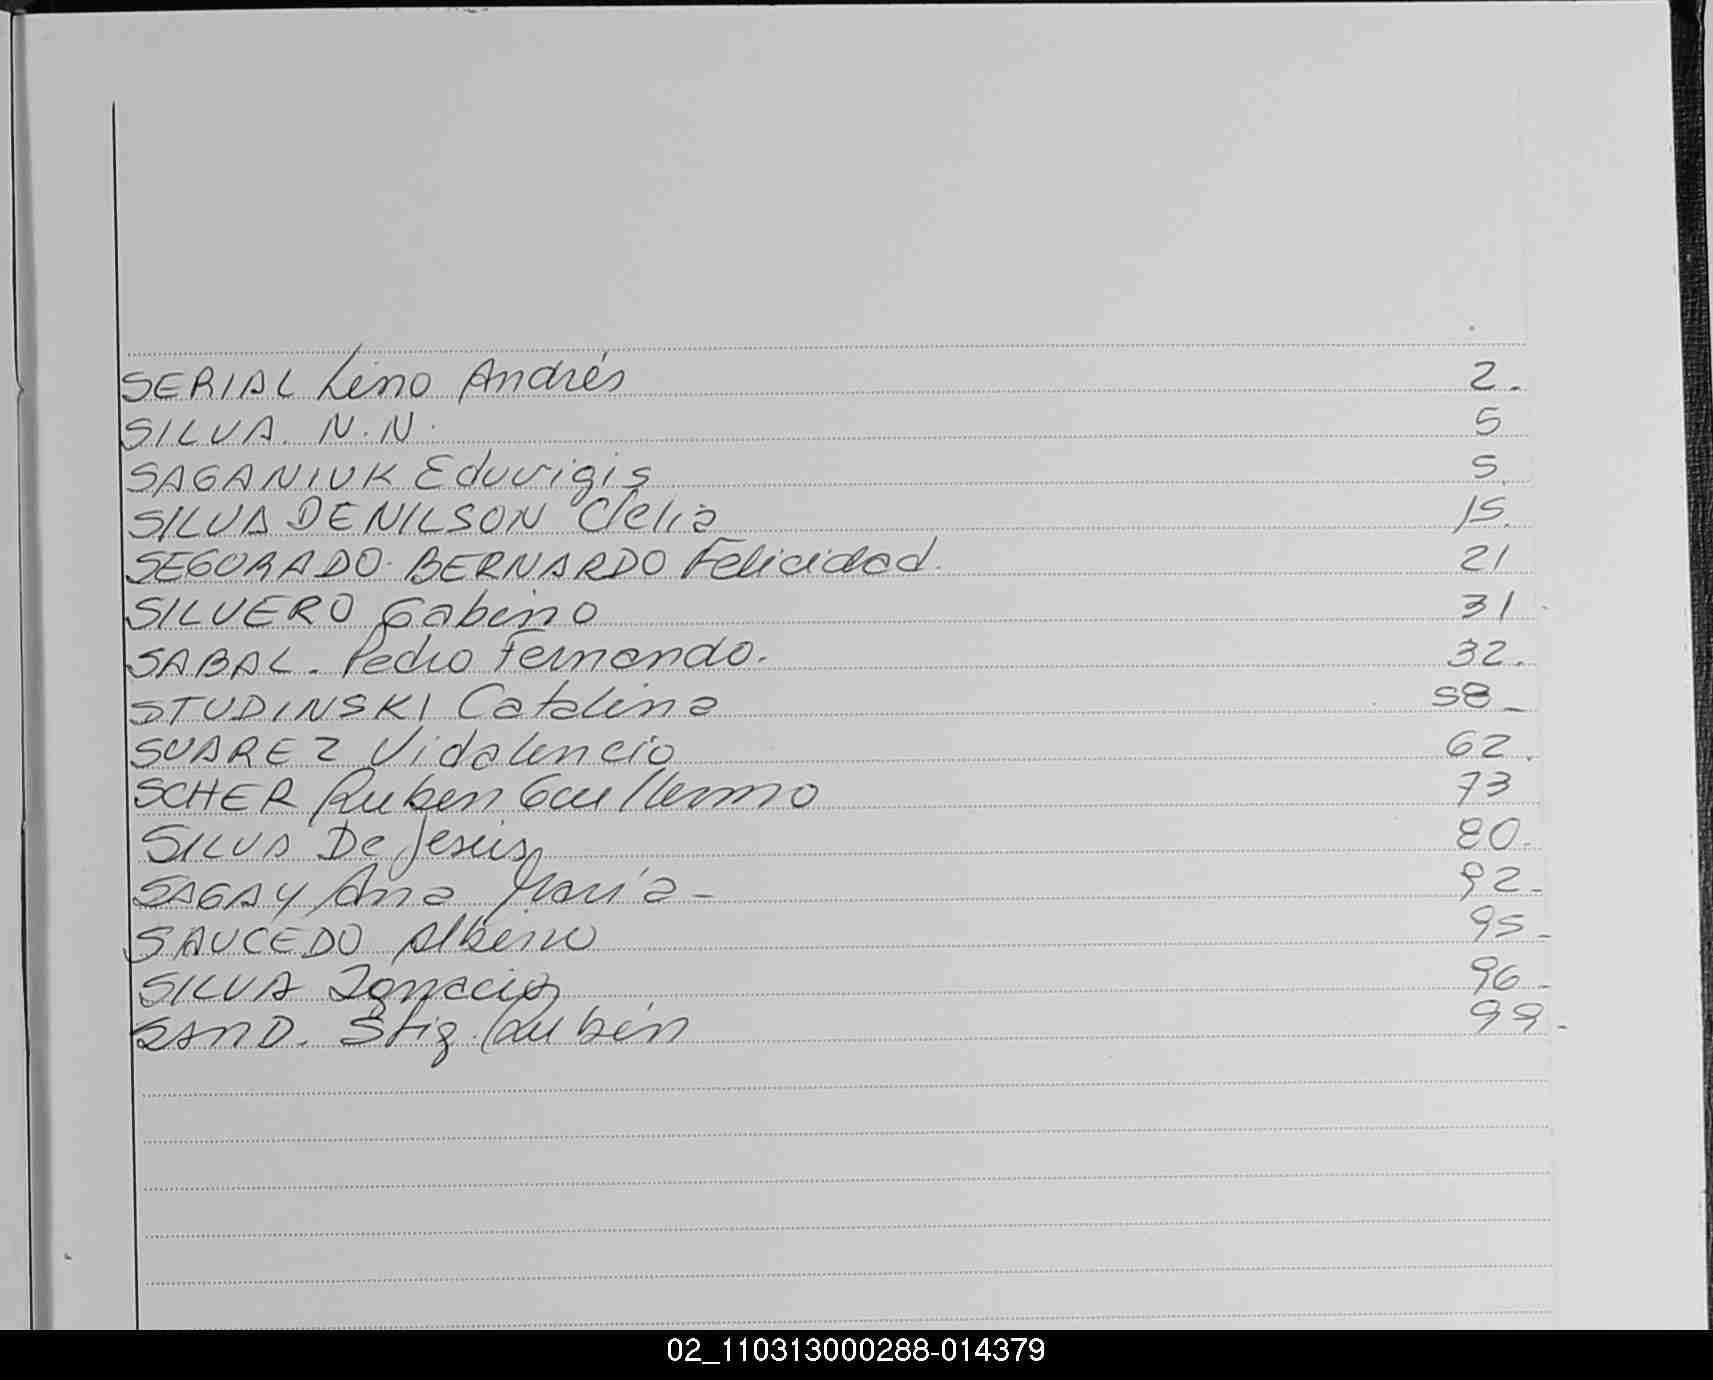 SERIAL Lino Andrés 2.
SILVA. N.N. 5
SAGANIUK Eduvigis 5.
SILVA DENILSON Clelia 15.
SEGORADO. BERNARDO Felicidad. 21
SILVERO Gabino 31
SABAL. Pedro Fernando. 32.
STUDINSKI Catalina 58_
SUAREZ Vidalencio 62.
SCHER Ruben Guillermo 73
SILVA De Jesús 80.
SAGAY Ana María- 92-
SAUCEDO Albino 95_
SILVA Ignacio 96-
SAND. Stig. Rubén 99.
02_110313000288-014379